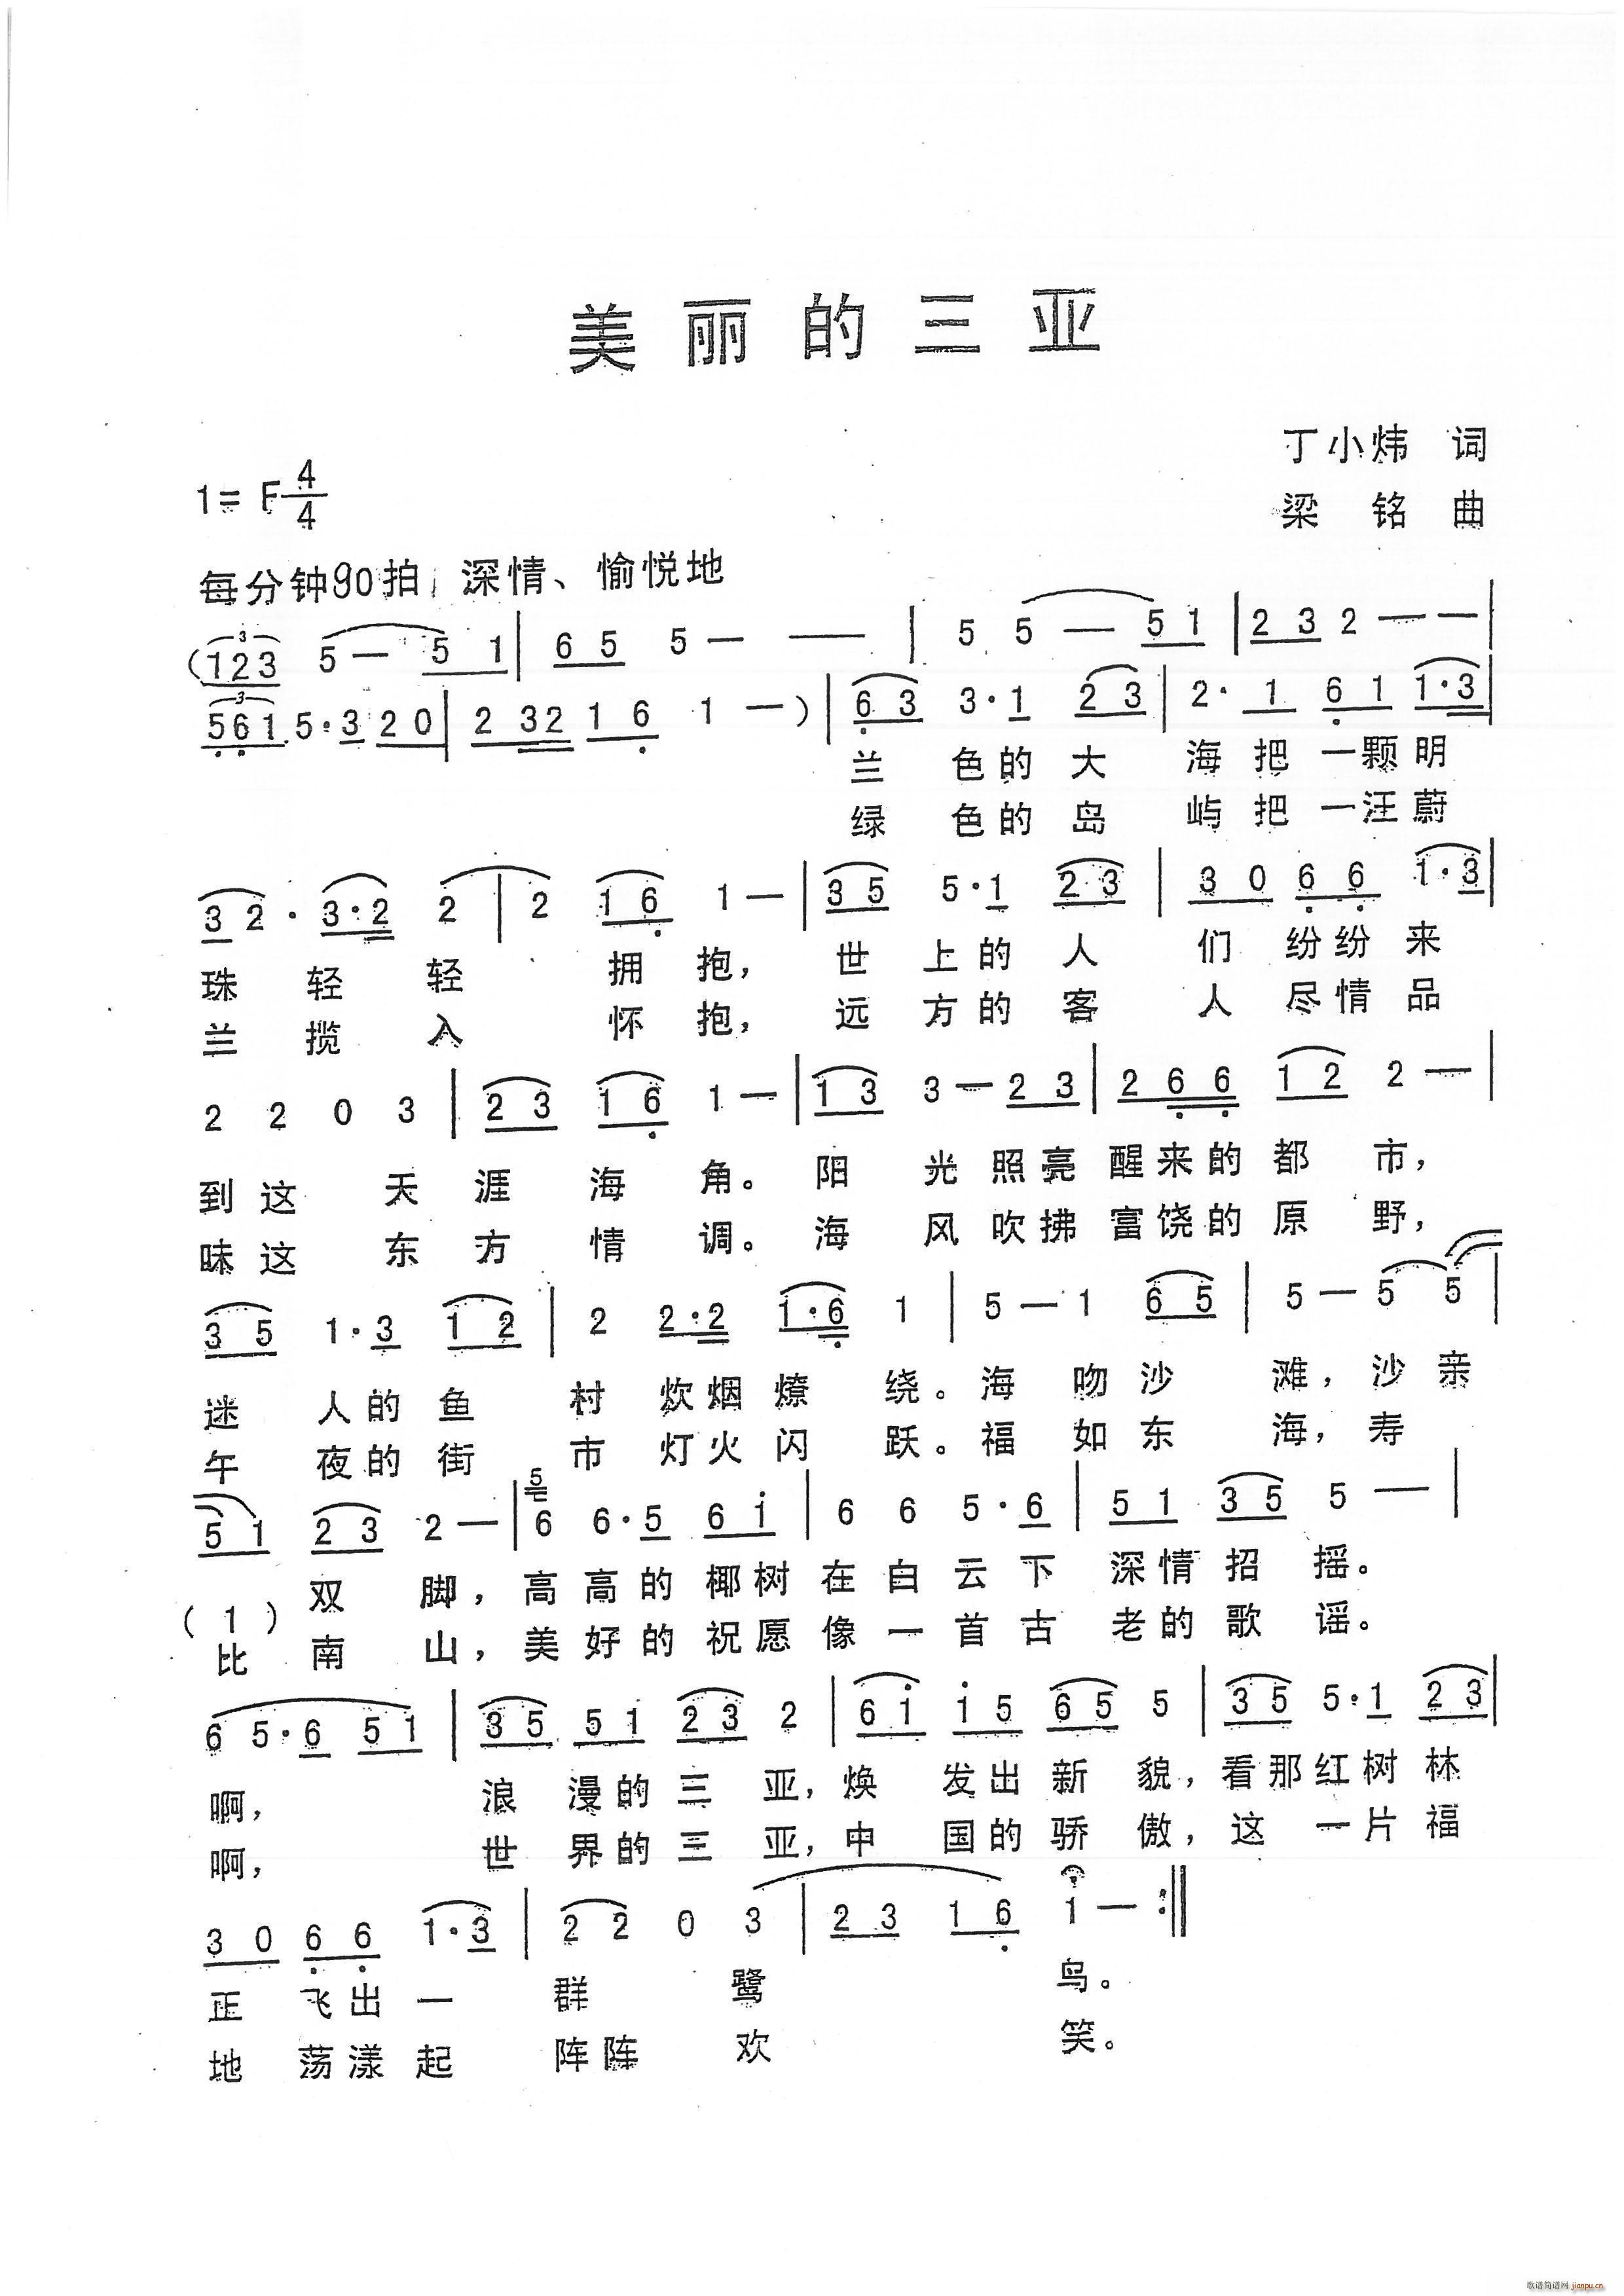 美丽的三亚
丁小炜 词
1= F 4/4
梁 铭 曲
每分钟90拍 深情、愉悦地
(123 5— 5 1 | 65 5— — | 5 5— 51 | 23 2— — |
561 5·3 20 | 2 32 16 1—) | 63 3·1 23 | 2·1 61 1·3 |
兰 色的大 海把一颗明
绿 色的岛 屿把一汪蔚
32· 3·2 2 | 2 16 1— | 35 5·1 23 | 30 66 1·3 |
珠 轻 轻 拥 抱, 世 上的人 们 纷纷来
兰 揽 入 怀 抱, 远 方的客 人 尽情品
2 2 0 3 | 23 16 1— | 13 3—23 | 266 12 2— |
到这 天涯海角。阳 光照亮醒来的都 市,
味这 东方情调。海 风吹拂富饶的原 野,
35 1·3 12 | 2 2·2 1·6 1 | 5—1 65 | 5—5 5 |
迷 人的鱼 村 炊烟燎 绕。海 吻沙 滩,沙亲
午 夜的街 市 灯火闪 跃。福 如东 海,寿
5
51 23 2— | 6 6·5 6i | 6 6 5·6 | 51 35 5— |
双 脚,高高的椰树在白云下 深情招 摇。
(1)
比 南 山,美好的祝愿像一首古 老的歌 谣。
6 5·6 51 | 35 51 23 2 | 6i i5 65 5 | 35 5·1 23 |
啊, 浪 漫的三 亚,焕 发出新 貌,看那红树林
啊, 世 界的三 亚,中 国的骄 傲,这 一片福
30 66 1·3 | 22 0 3 | 23 16 1— :||
正 飞出一 群 鹭 鸟。
地 荡漾起 阵阵 欢 笑。
歌谱简谱网
jianpu.cn